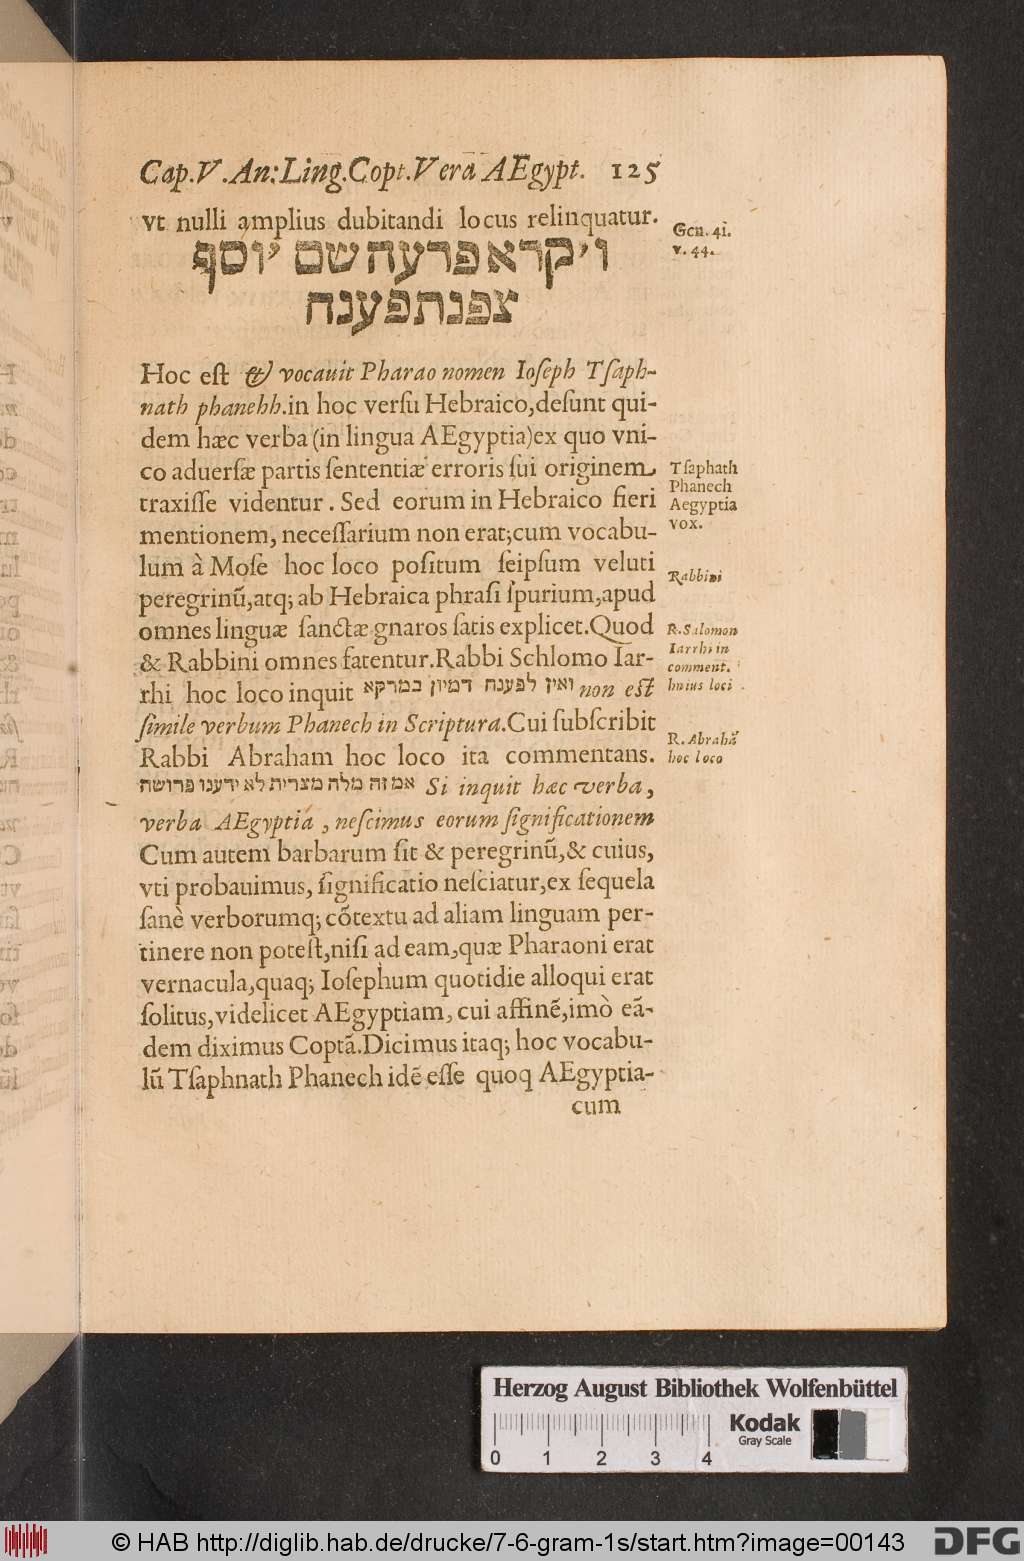 Cap.V.An:Ling.Copt.Vera AEgypt. 125
vt nulli amplius dubitandi locus relinquatur.
Gen. 41.
v. 44.
ויקרא פרעה שם יוסף
צפנת פענח
Hoc eſt & vocauit Pharao nomen Ioſeph Tſaph-
nath phanehh.in hoc verſu Hebraico,deſunt qui-
dem hæc verba (in lingua AEgyptia)ex quo vni-
co aduerſæ partis ſententiæ erroris ſui originem
traxiſſe videntur. Sed eorum in Hebraico fieri
mentionem, neceſſarium non erat;cum vocabu-
lum à Moſe hoc loco poſitum ſeipſum veluti
peregrinũ,atq; ab Hebraica phraſi ſpurium,apud
omnes linguæ ſanctæ gnaros ſatis explicet.Quod
& Rabbini omnes fatentur.Rabbi Schlomo Iar-
rhi hoc loco inquit ואין לפענח דמיון במרקא non eſt
ſimile verbum Phanech in Scriptura.Cui ſubſcribit
Rabbi Abraham hoc loco ita commentans.
אם זה מלה מצרית לא ידענו פרושה Si inquit hæc verba,
verba AEgyptia, neſcimus eorum ſignificationem
Cum autem barbarum ſit & peregrinũ,& cuius,
vti probauimus, ſignificatio neſciatur,ex ſequela
ſanè verborumq; cõtextu ad aliam linguam per-
tinere non poteſt,niſi ad eam,quæ Pharaoni erat
vernacula,quaq; Ioſephum quotidie alloqui erat
ſolitus,videlicet AEgyptiam, cui affinẽ,imò eã-
dem diximus Coptã.Dicimus itaq; hoc vocabu-
lũ Tſaphnath Phanech idẽ eſſe quoq AEgyptia-
cum
Tſaphath
Phanech
Aegyptia
vox.
Rabbini
R.Salomon
Iarrhi in
comment.
huius loci.
R.Abrahã
hoc loco
Herzog August Bibliothek Wolfenbüttel
Kodak
Gray Scale
0 1 2 3 4
© HAB http://diglib.hab.de/drucke/7-6-gram-1s/start.htm?image=00143
DFG